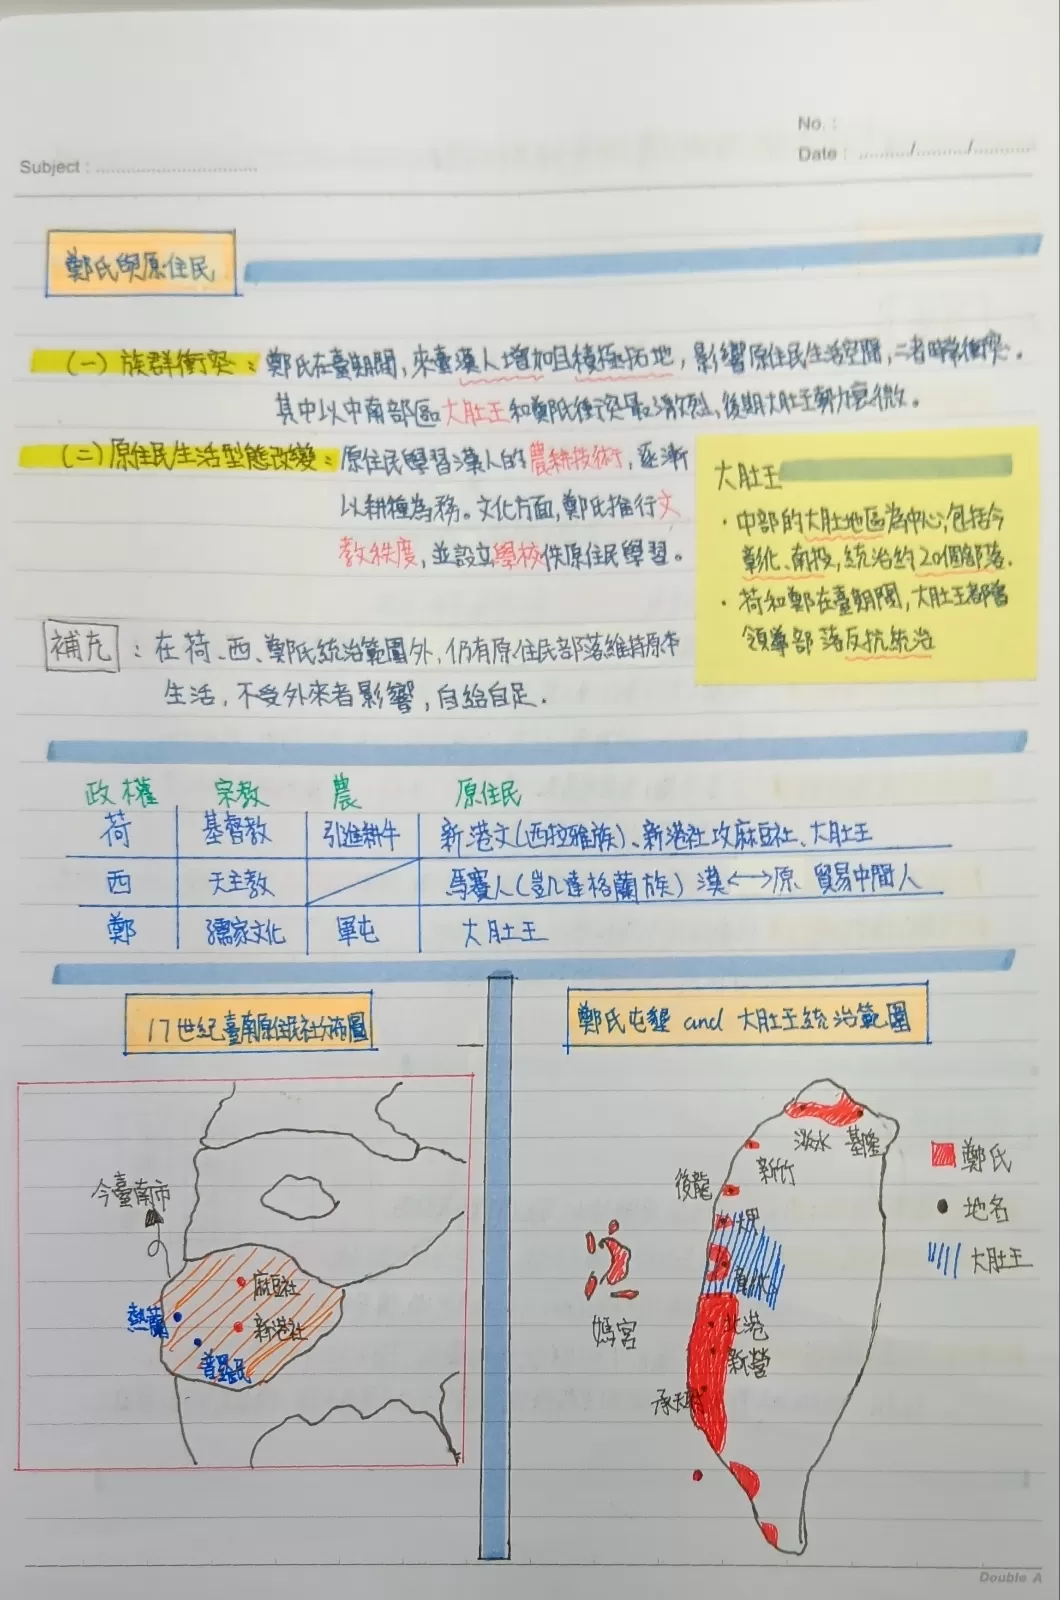 No. :
Subject :
Date : / /
鄭氏與原住民
(一) 族群衝突：鄭氏在臺期間，來臺漢人增加且積極拓地，影響原住民生活空間，二者時常衝突。
其中以中南部區大肚王和鄭氏衝突最激烈，後期大肚王朝方衰微。
(二)原住民生活型態改變：原住民學習漢人的農耕技術，逐漸
以耕種為務。文化方面，鄭氏推行文
教秩度，並設立學校供原住民學習。
大肚王
·中部的大肚地區為中心，包括今
彰化、南投，統治約20個部落。
·荷和鄭在臺期間，大肚王都曾
領導部落反抗統治
補充：在荷、西、鄭氏統治範圍外，仍有原住民部落維持原本
生活，不受外來者影響，自給自足.
政權 宗教 農 原住民
荷 基督教 引進耕牛 新港文(西拉雅族)、新港社攻麻豆社、大肚王
西 天主教 馬賽人(凱達格蘭族) 漢↔原 貿易中間人
鄭 儒家文化 軍屯 大肚王
17世紀臺南原住民社分佈圖
鄭氏屯墾 and 大肚王統治範圍
今臺南市
麻豆社
熱蘭
新港社
普羅民
淡水 基隆
新竹
後龍
大甲
媽宮
北港
新營
承天府
鄭氏
地名
大肚王
Double A